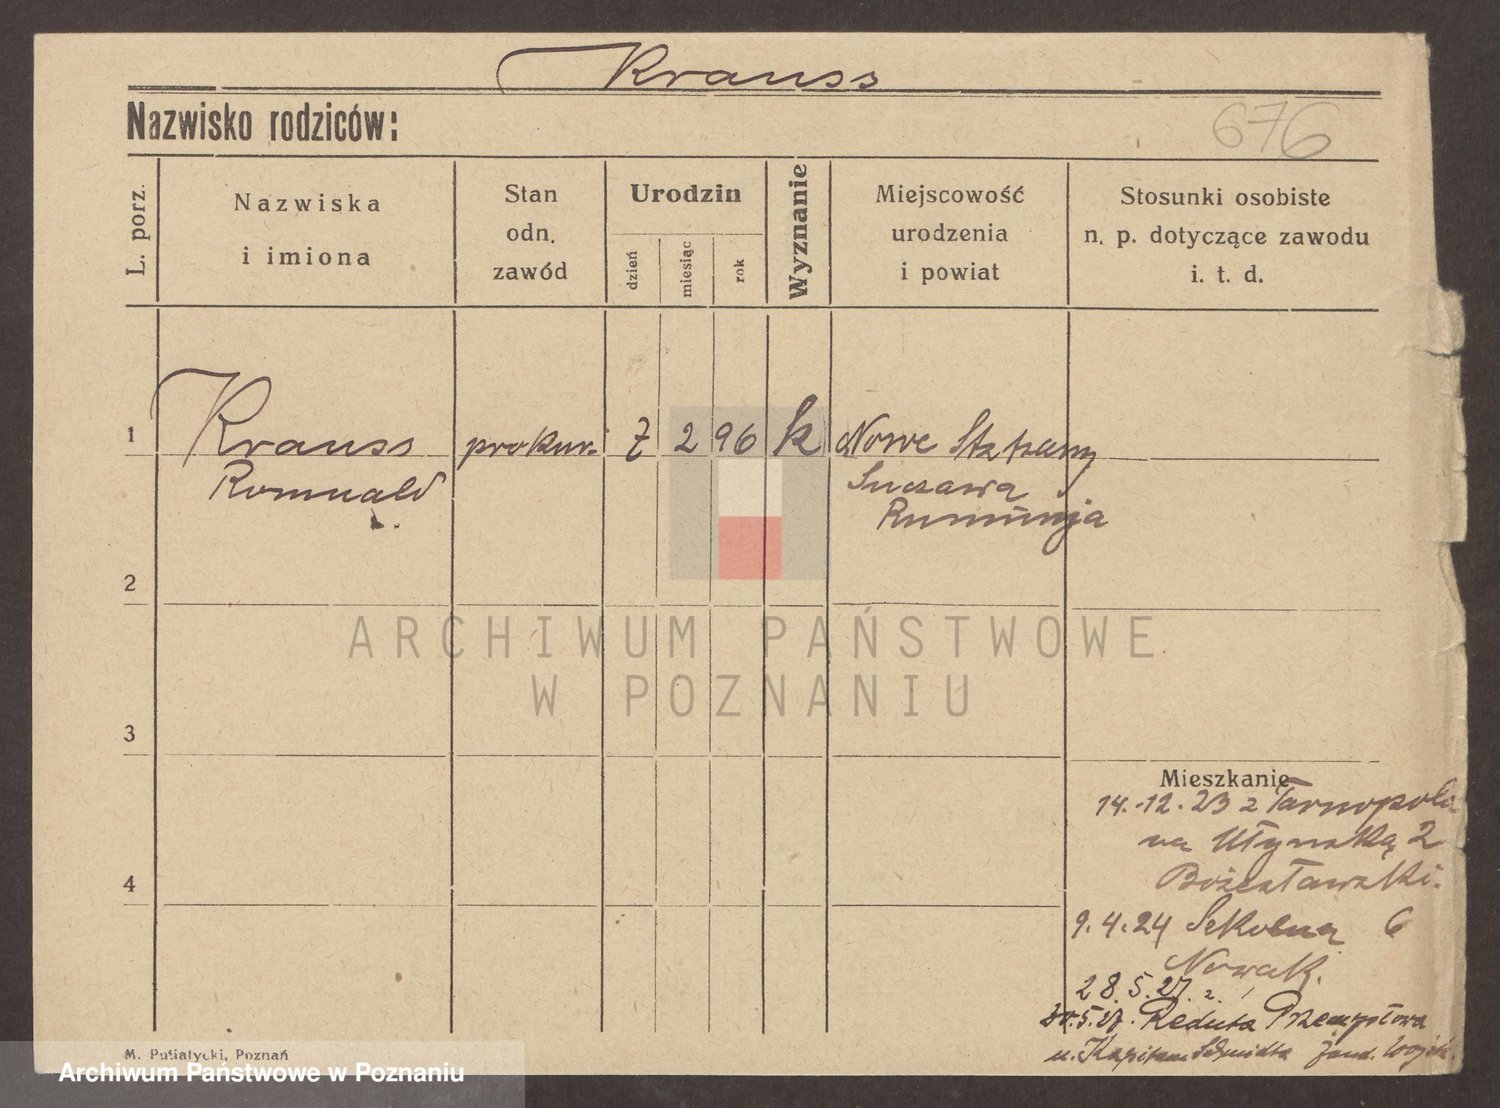 Krauss
Nazwisko rodziców:
676
L. porz.
Nazwiska
i imiona
Stan
odn.
zawód
Urodzin
dzień
miesiąc
rok
Wyznanie
Miejscowość
urodzenia
i powiat
Stosunki osobiste
n. p. dotyczące zawodu
i. t. d.
1 Krauss prokur. 7 2 96 k Nowe
Romuald Suczawa
Rumunja
2
ARCHIWUM PAŃSTWOWE
W POZNANIU
3
Mieszkanie
14.-12.23 z Tarnopola
na 2
9.4.24 Szkolna 6
Nowak.
4
28.5.27.
5.27. Reduta Przemysłowa
u. Kapitana Schmidta żand.
M. Putiatycki, Poznań
Archiwum Państwowe w Poznaniu